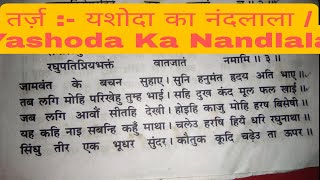 तर्ज़ :- यशोदा का नंदलाला /
Yashoda Ka Nandlala
रघुपतिप्रियभक्तं वातजातं नमामि ॥ ३ ॥
जामवंत के बचन सुहाए। सुनि हनुमंत हृदय अति भाए॥
तब लगि मोहि परिखेहु तुम्ह भाई। सहि दुख कंद मूल फल खाई॥
जब लगि आवौं सीतहि देखी। होइहि काजु मोहि हरष बिसेषी॥
यह कहि नाइ सबन्हि कहुँ माथा। चलेउ हरषि हियँ धरि रघुनाथा॥
सिंधु तीर एक भूधर सुंदर। कौतुक कूदि चढ़ेउ ता ऊपर॥